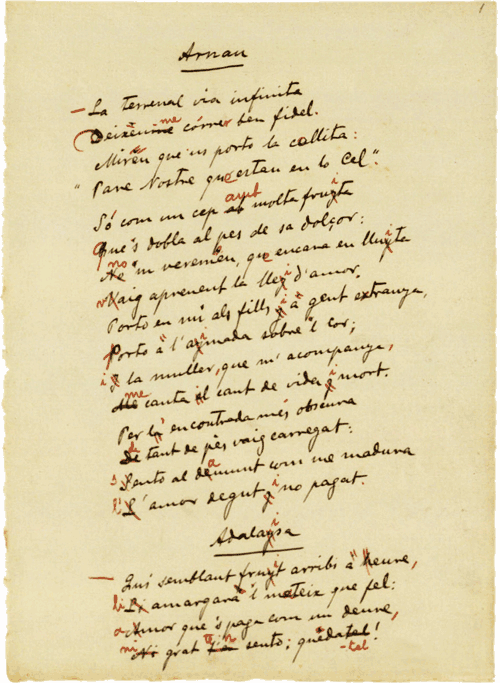 1
Arnau
— La terrenal via infinita
Deixeu-me córrer sen fidel.
Mireu que us porto la collita:
"Pare Nostre que estau en lo Cel".
Só com un cep amb molta fruita
que's dobla al pes de sa dolçor:
no 'm veremeu, que encara en lluita
vaig aprenent la llei d'amor.
Porto en mi als fills i a gent extranya,
porto a l'aimada sobre 'l cor;
i la muller, que m' acompanya,
me canta el cant de vida i mort.
Per la encontrada més obscura
de tant de pès vaig carregat:
sento al damunt com me madura
l'amor degut i no pagat.
Adalaisa
— Qui semblant fruit arribi a heure,
li amargarà 'l mateix que fel:
amor que's paga com un deure,
ni grat sento; quèda-tel!